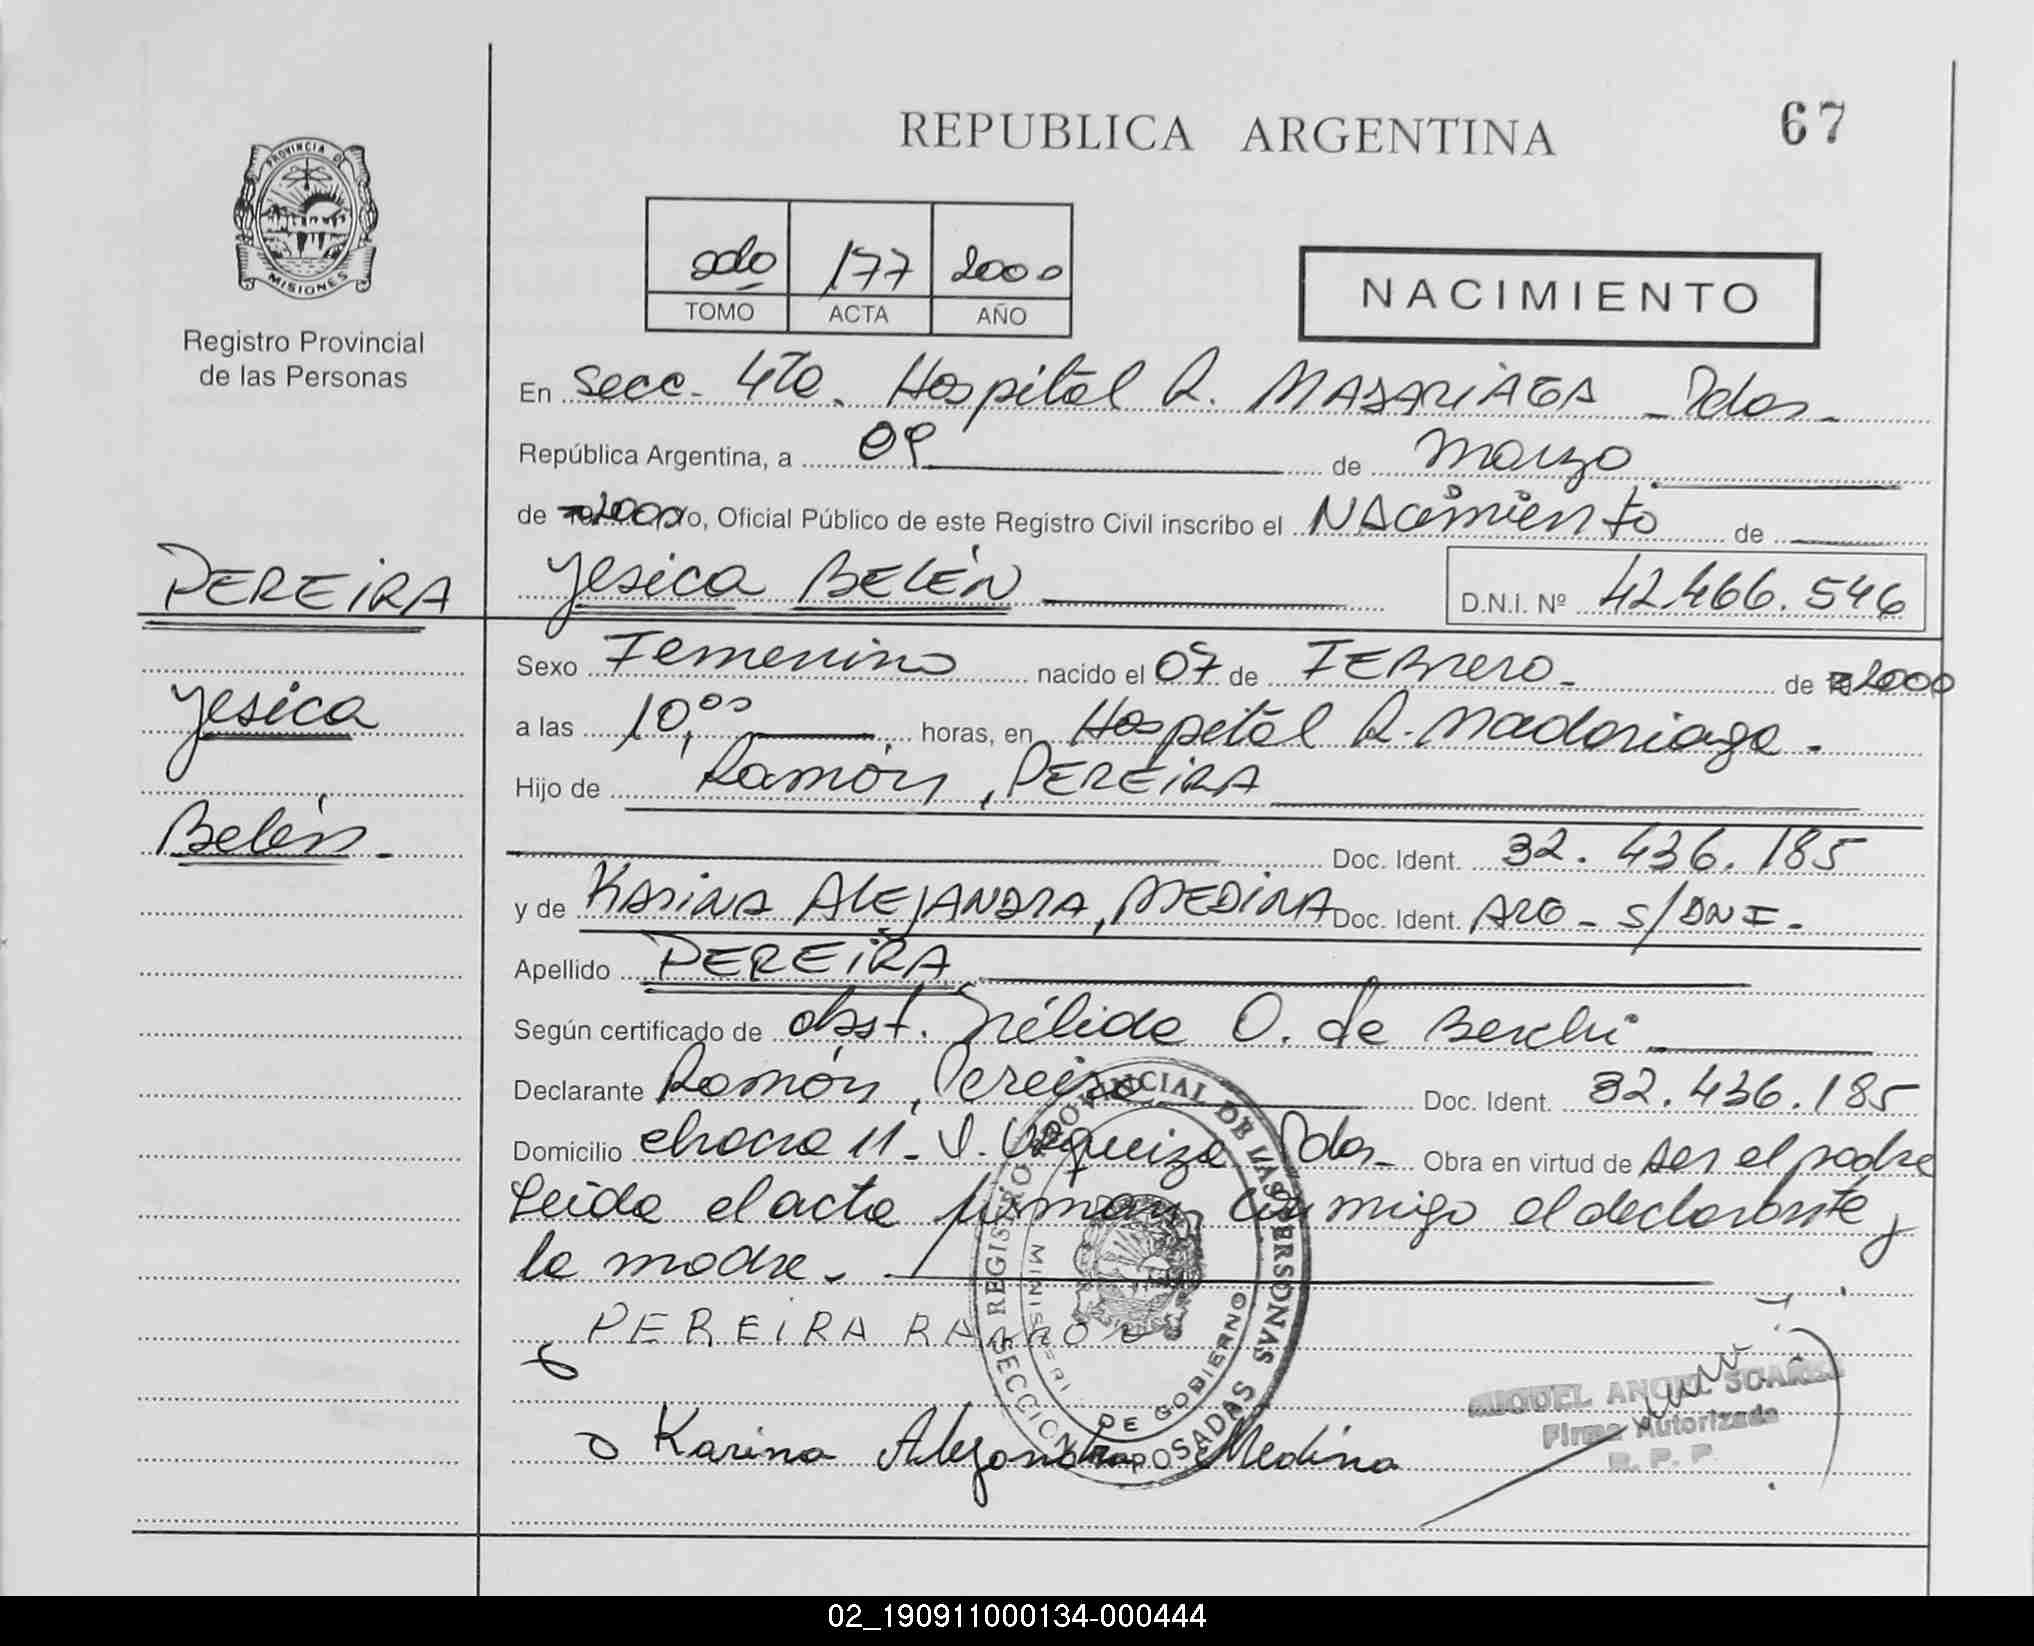 REPUBLICA ARGENTINA
67
PROVINCIA DE
MISIONES
Registro Provincial
de las Personas
2do 177 2000
TOMO ACTA AÑO
NACIMIENTO
En Secc. 4ta. Hospital R. MADARIAGA - Pdas-
República Argentina, a 09 de Marzo
de 2000 yo, Oficial Público de este Registro Civil inscribo el NAcimiento de
PEREIRA
Yesica BELÉN D.N.I. Nº 42.466.546
Yesica
Belén-
Sexo Femenino nacido el 07 de FEBrero- de 2000
a las 10,00 horas, en Hospital R. Madariaga.
Hijo de Ramón, PEREIRA
Doc. Ident. 32.436.185
y de KARINA ALEJANDRA, MEDINA Doc. Ident. ARG - S/DNI-
Apellido PEREIRA
Según certificado de obst. Nélida O. de Berchi
Declarante Ramón, Pereira Doc. Ident. 32.436.185
Domicilio chacra 11- V. Urquiza Pdas- Obra en virtud de ser el padre
Leida el acta firman conmigo el declarante y
la madre.
PEREIRA RAMON
Karina Alejandra Medina
REGISTRO PROVINCIAL DE LAS PERSONAS
MINISTERI DE GOBIERNO
SECCION POSADAS
MIGUEL ANGEL SUAREZ
Firma Autorizada
R. P. P.
02_190911000134-000444